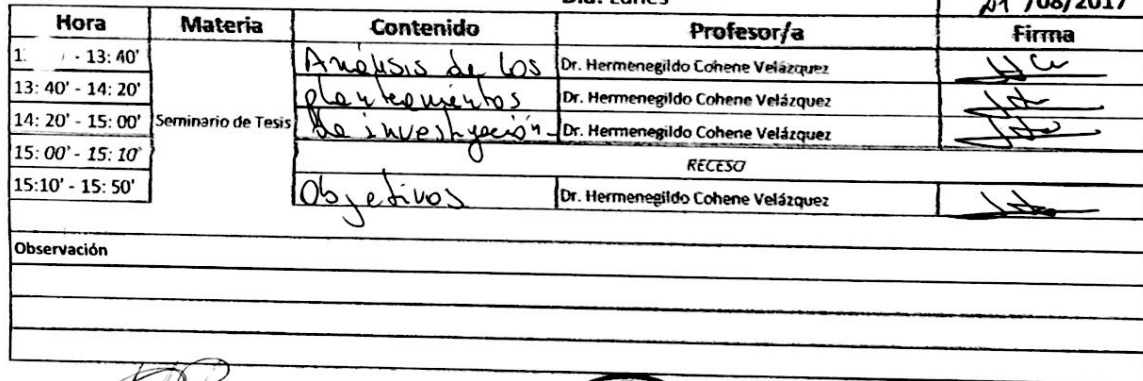 Día: Lunes
21 /08/2017
Hora Materia Contenido Profesor/a Firma
- 13: 40' Análisis de los Dr. Hermenegildo Cohene Velázquez
13: 40' - 14: 20' planteamientos Dr. Hermenegildo Cohene Velázquez
14: 20' - 15: 00' Seminario de Tesis de investigación- Dr. Hermenegildo Cohene Velázquez
15: 00' - 15: 10' RECESO
15:10' - 15: 50' Objetivos Dr. Hermenegildo Cohene Velázquez
Observación